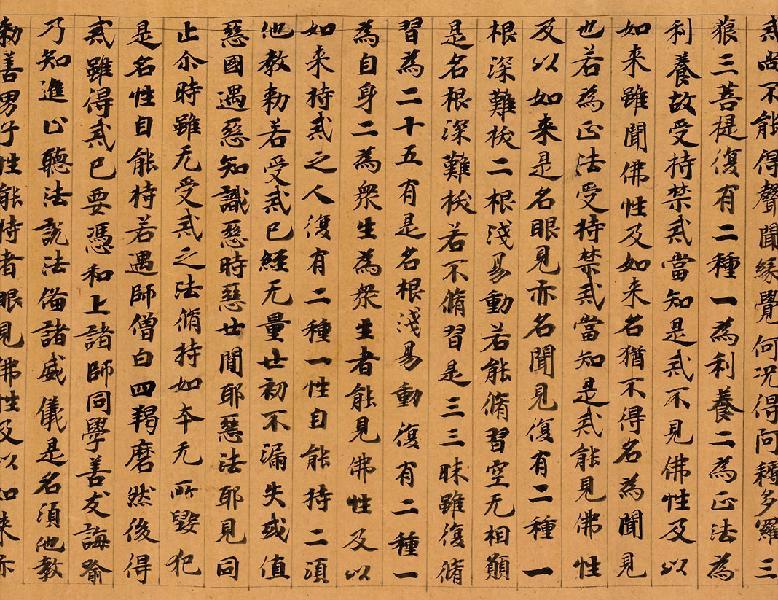 戒尚不能得聲聞緣覺何況得阿耨多羅三
狼三菩提復有二種一為利養二為正法為
利養故受持禁戒當知是戒不見佛性及以
如来雖聞佛性及如来名猶不得名為聞見
也若為正法受持禁戒當知是戒能見佛性
及以如来是名眼見亦名聞見復有二種一
根深難拔二根淺易動若能脩習空无相願
是名根深難拔若不脩習是三三昧雖復脩
習為二十五有是名根淺易動復有二種一
為自身二為衆生為衆生者能見佛性及以
如来持戒之人復有二種一性自能持二須
他教勑若受戒已經无量世初不漏失或值
惡國遇惡知識惡時惡世聞耶惡法耶見同
止尒時雖无受戒之法脩持如本无所毀犯
是名性自能持若遇師僧白四羯磨然後得
戒雖得戒已要憑和上諸師同學善友誨喻
乃知進止聽法說法備諸威儀是名須他教
勑善男子性能持者眼見佛性及以如来亦